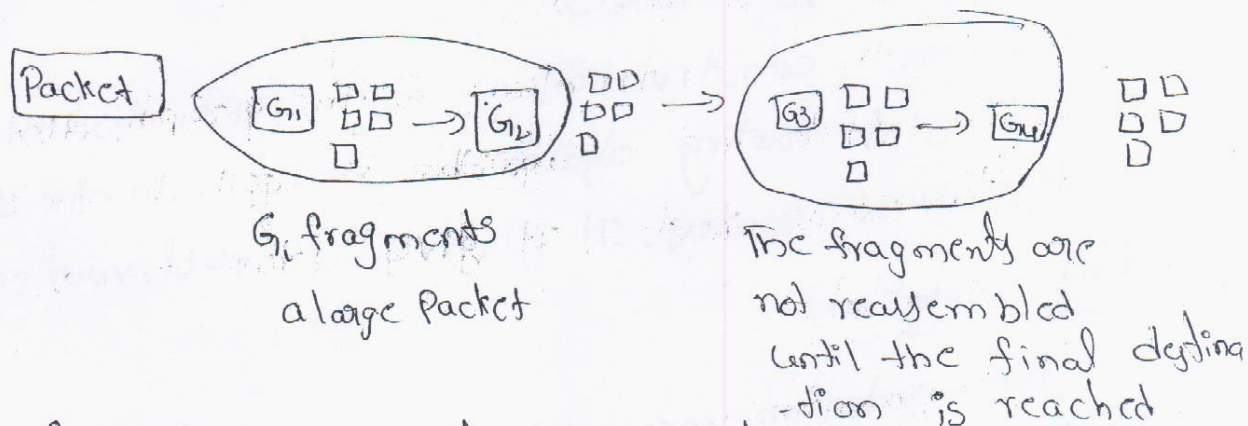 Packet
G1
G2
G3
G4
G1 fragments
a large Packet
The fragments are
not reassembled
until the final destina
-tion is reached